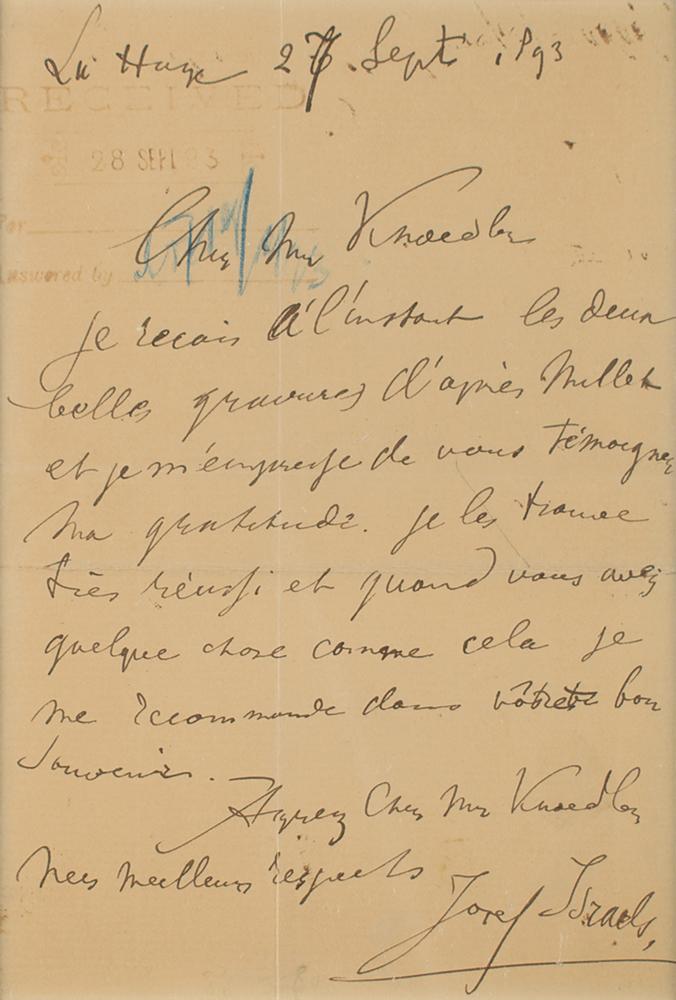 La Haye 27 Sept. 1893
RECEIVED
28 SEPT 93
For
Answered by
Cher Mr Knoedler
je reçois à l'instant les deux
belles gravures d'après Millet
et je m'empresse de vous témoigner
ma gratitude. je les trouve
très réussi et quand vous avez
quelque chose comme cela je
me recommande dans vôtre bon
souvenir.
Agreez Cher Mr Knoedler
mes meilleurs respects
Jozef Israels,